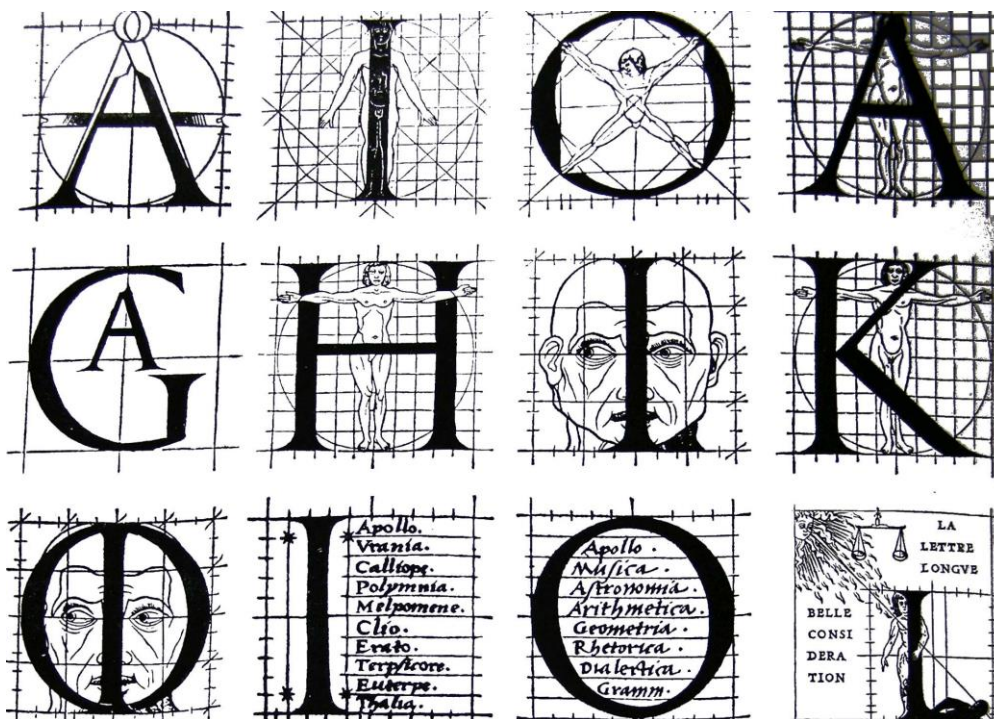 A
I
O
A
G
A
H
I
K
O
I
I
Apollo.
Vrania.
Calliope.
Polymnia.
Melpomene.
Clio.
Erato.
Terpſicore.
Euterpe.
Thalia.
O
Apollo.
Muſica.
Aſtronomia.
Arithmetica.
Geometria.
Rhetorica.
Dialectica.
Gramm.
LA
LETTRE
LONGVE
BELLE
CONSI
DERA
TION
L